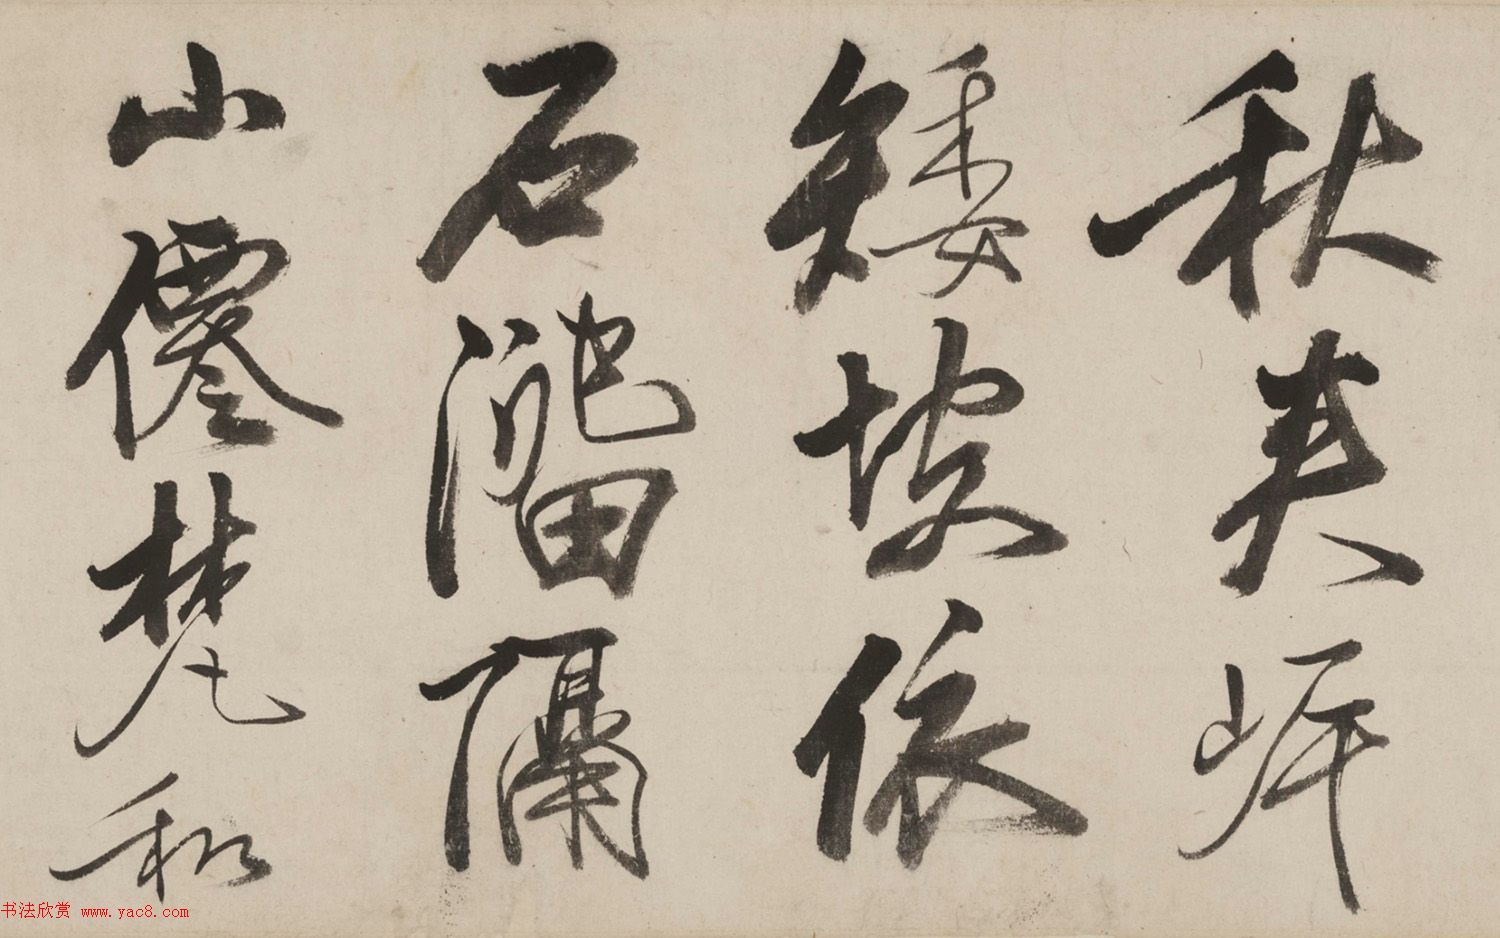 秋
矮坡依
石溜隔
山僊梵和
书法欣赏 www.yac8.com